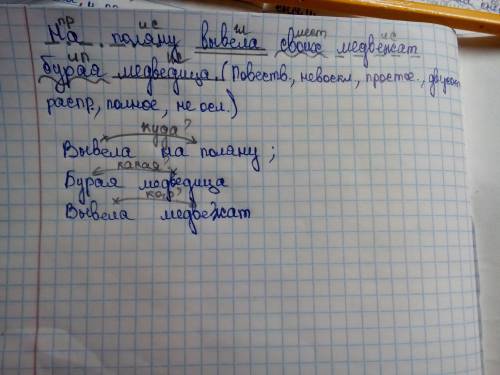 пр ис гл мест ис
На поляну вывела своих медвежат
ип ис
бурая медведица. (Повеств., невоскл, простое., двусост
распр, полное, не осл.)
куда?
Вывела на поляну ;
какая?
Бурая медведица
кого?
Вывела медвежат